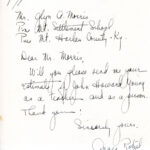 Mr. Glyn A. Morris
Pine Mt. Settlement School
Pine Mt. Harlan County - Ky
Dear Mr. Morris,
Will you please send me your
estimate of John Howard Young
as a teacher and as a person.
Thank you!
Sincerely yours,